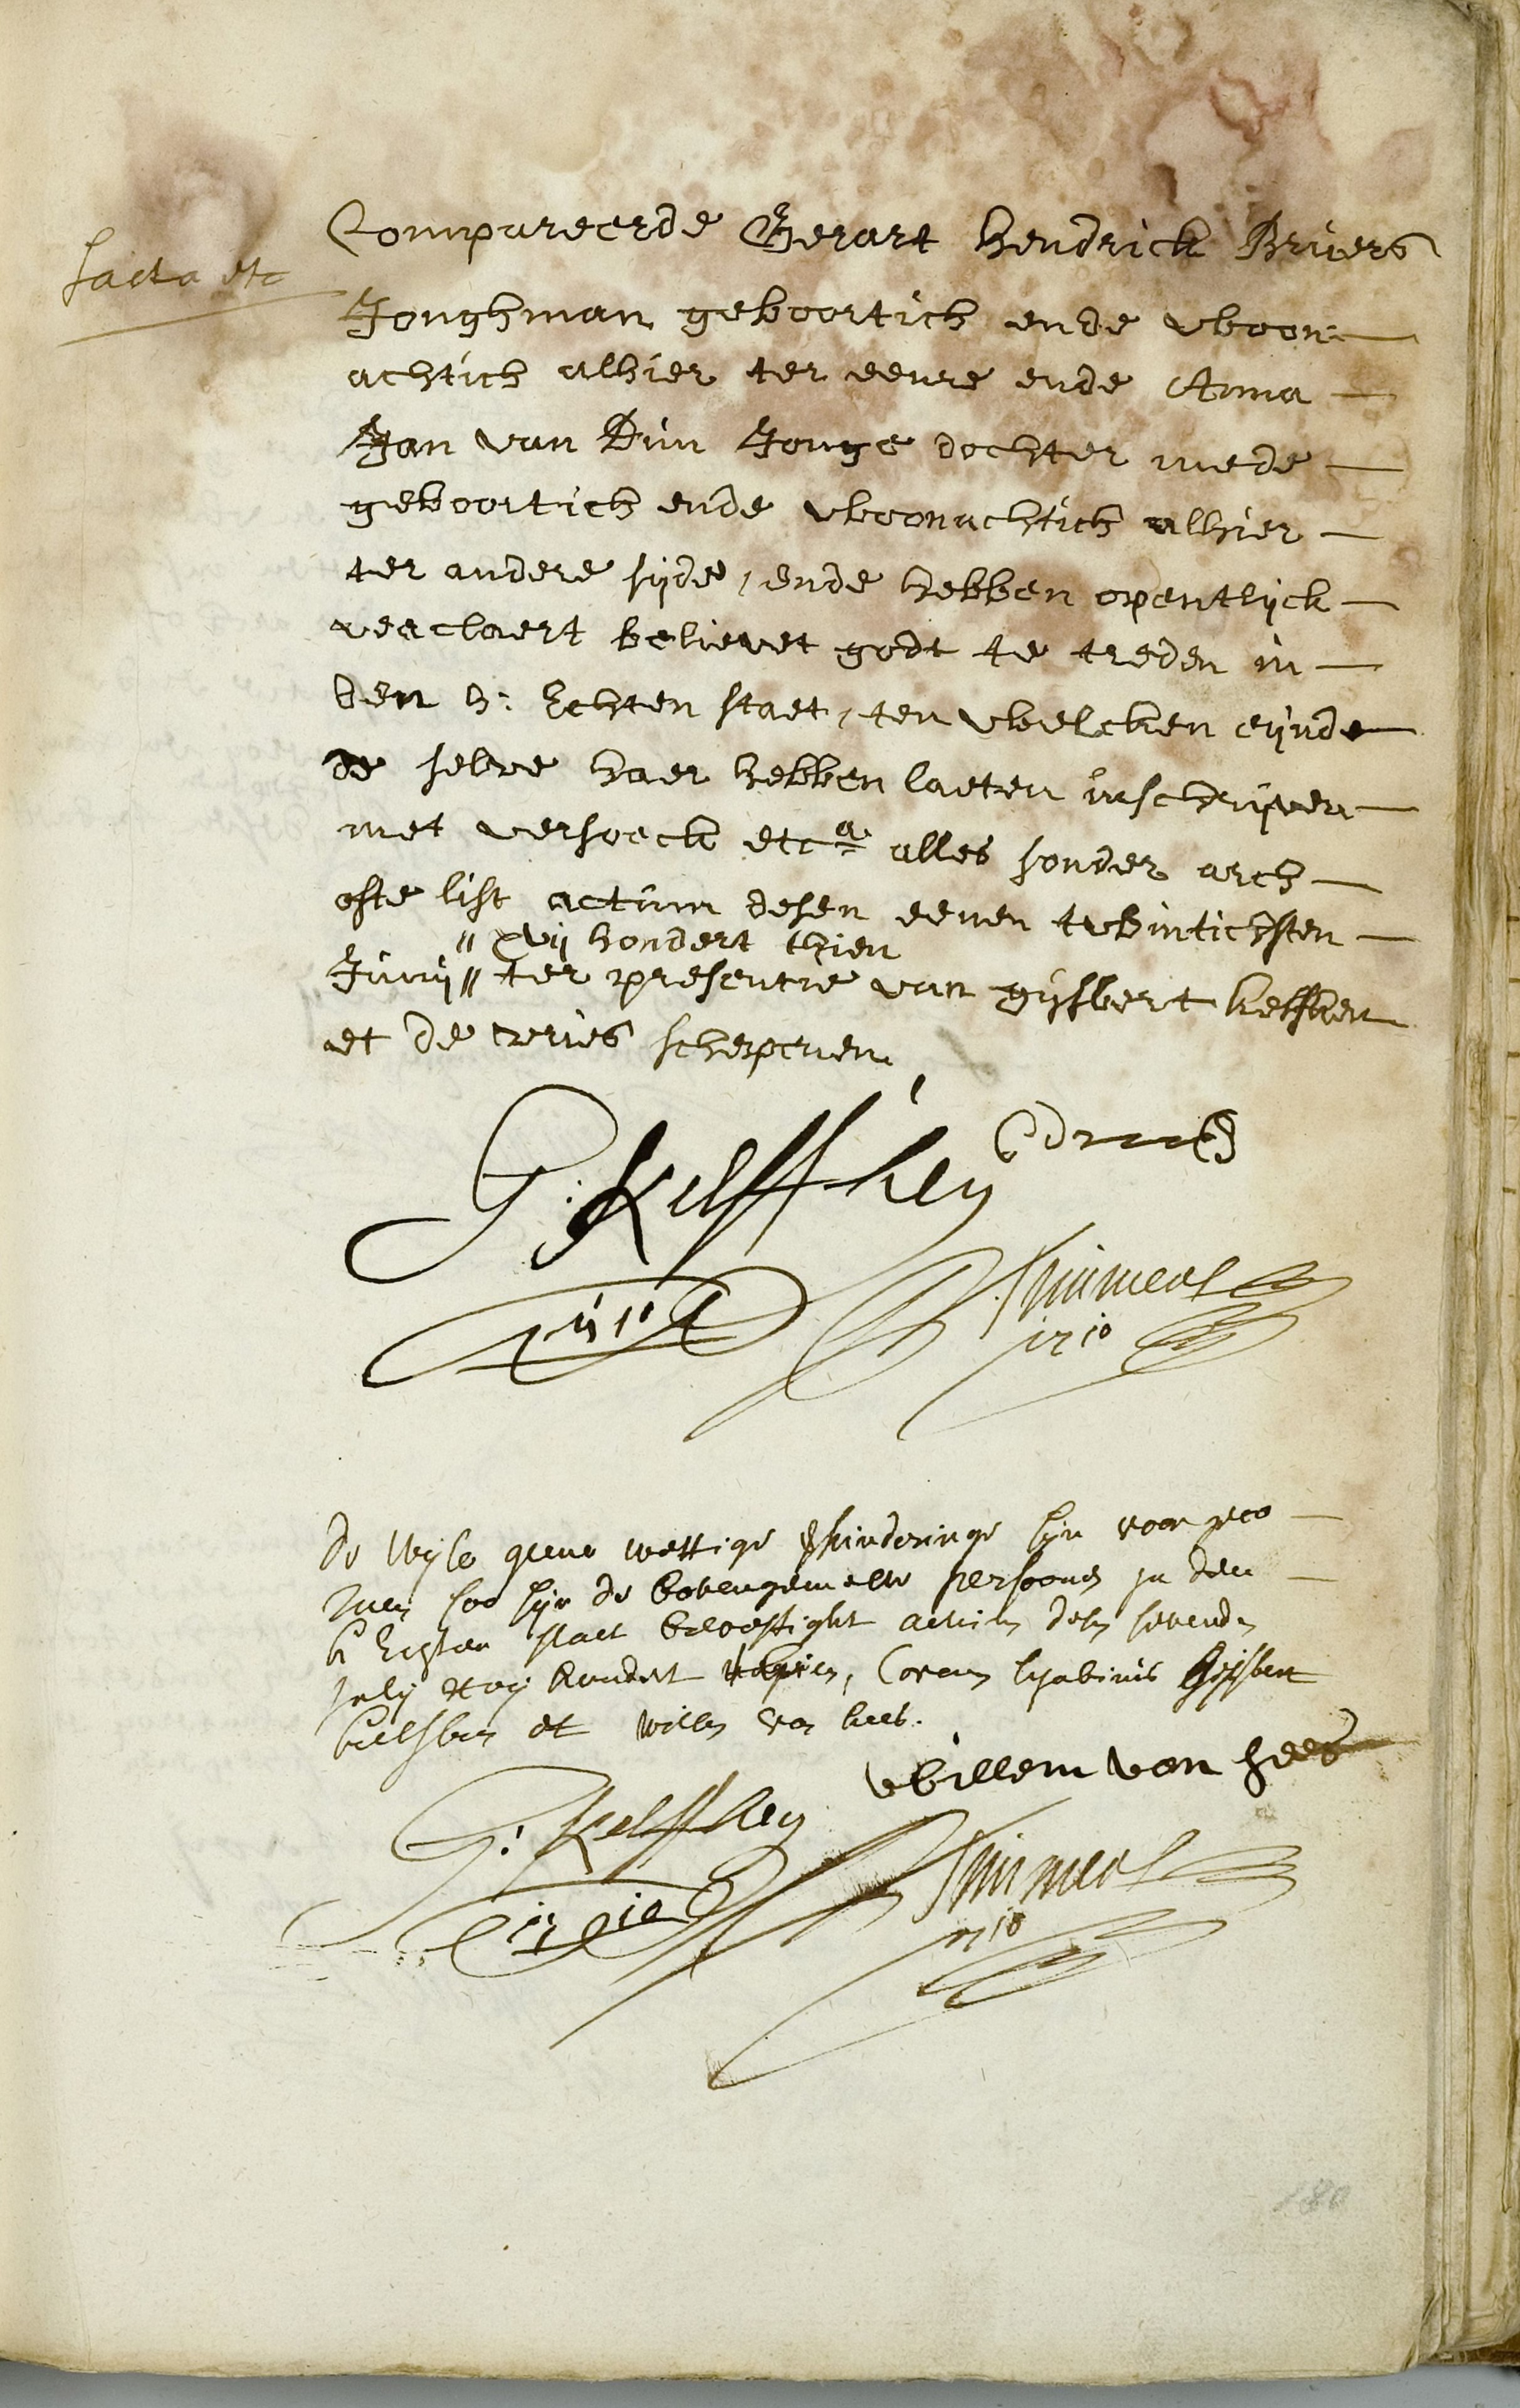 facta etc
Compareerde Gerart Hendrick Briers
Jonghman geboortich ende woon-
achtich alhier ter eenre ende Anna
Jan van Dun Jonge dochter mede
geboortich ende woonachtich alhier
ter andere sijde, ende hebben opentlijck
verclaert believet godt te treden in
den h: Echten staet, ten welcken eijnde
de selve haer hebben laeten inschrijven
met versoeck etca alles sonder arch
ofte list actum desen eenen twintichsten
" xvij hondert thien
Junij " ter presentie van gijsbert kelffken
et de vries schepenen
G: Kelffken
1710
1710
De Wijle geene wettige hinderinge sijn voor geco
men soo sijn de bovengemelte persoonen in den
h Echten staet bevestight actum desen sevenden
July xvij hondert thien, Coram schabinis Gijsbert
kelffken et willem van hees.
willem van hees
G: Kelffken
1710
1710
180